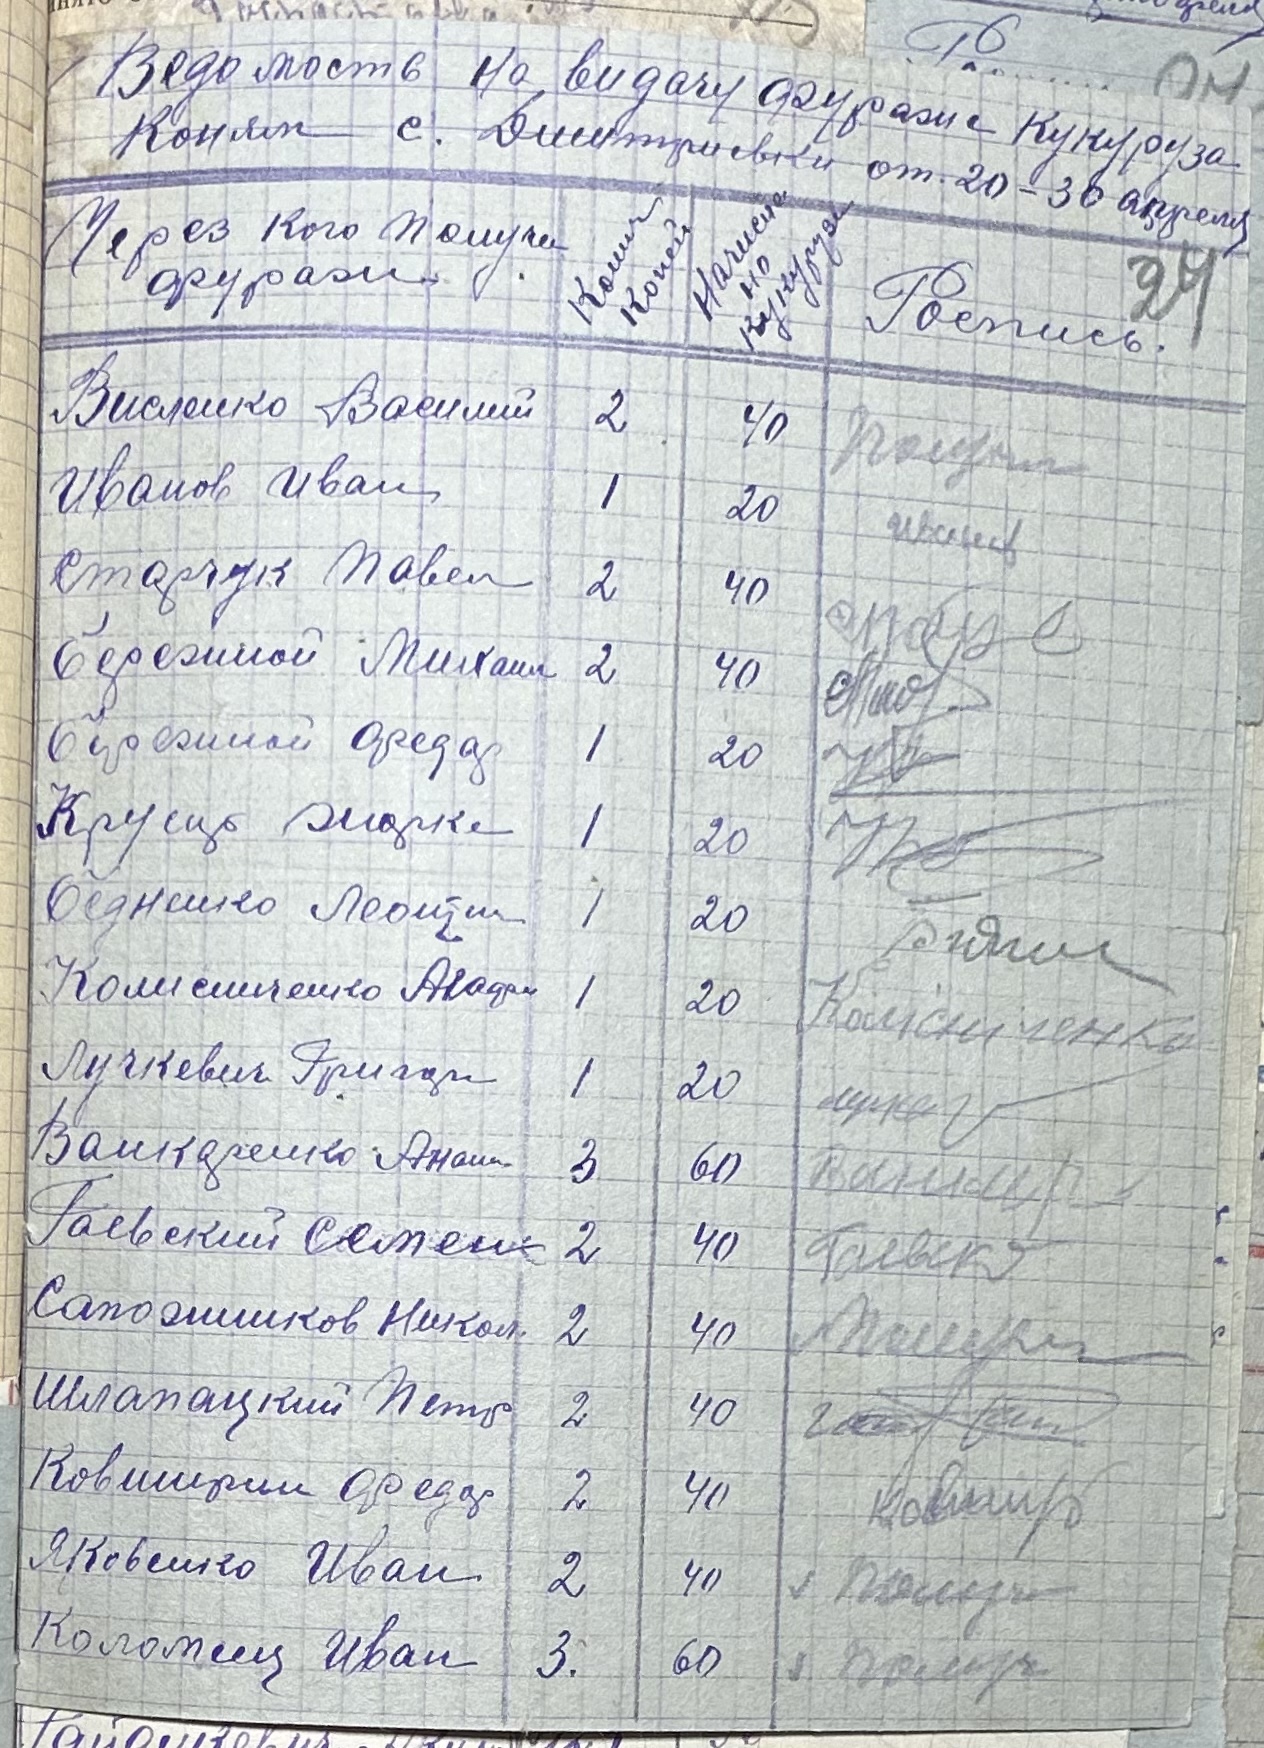 Ведомость на видачу фуража Кукуруза
Коням с. Дмитриевки от 20-30 апреля
24
Через кого Получен фураж.
Колич Коней
Начисено Кукурузи
Роспись.
Висленко Василий 2 40 Получил
Иванов Иван 1 20 иванов
Старчук Павел 2 40
Бережной Михаил 2 40
Бережной Федор 1 20
Крусцо Жорка 1 20
Бедненко Леонтий 1 20
Колисниченко Агафи 1 20 Колісніченко
Лучкевич Григори 1 20 лучкев
Ванкаренко Анани 3 60 Ванкар
Гаевский Семен 2 40 Гаевско
Сапожников Никол. 2 40
Шлапацкий Петр 2 40
Ковширин Федор 2 40 Ковшир
Яковенко Иван 2 40 Получ
Коломиец Иван 3. 60 Получ